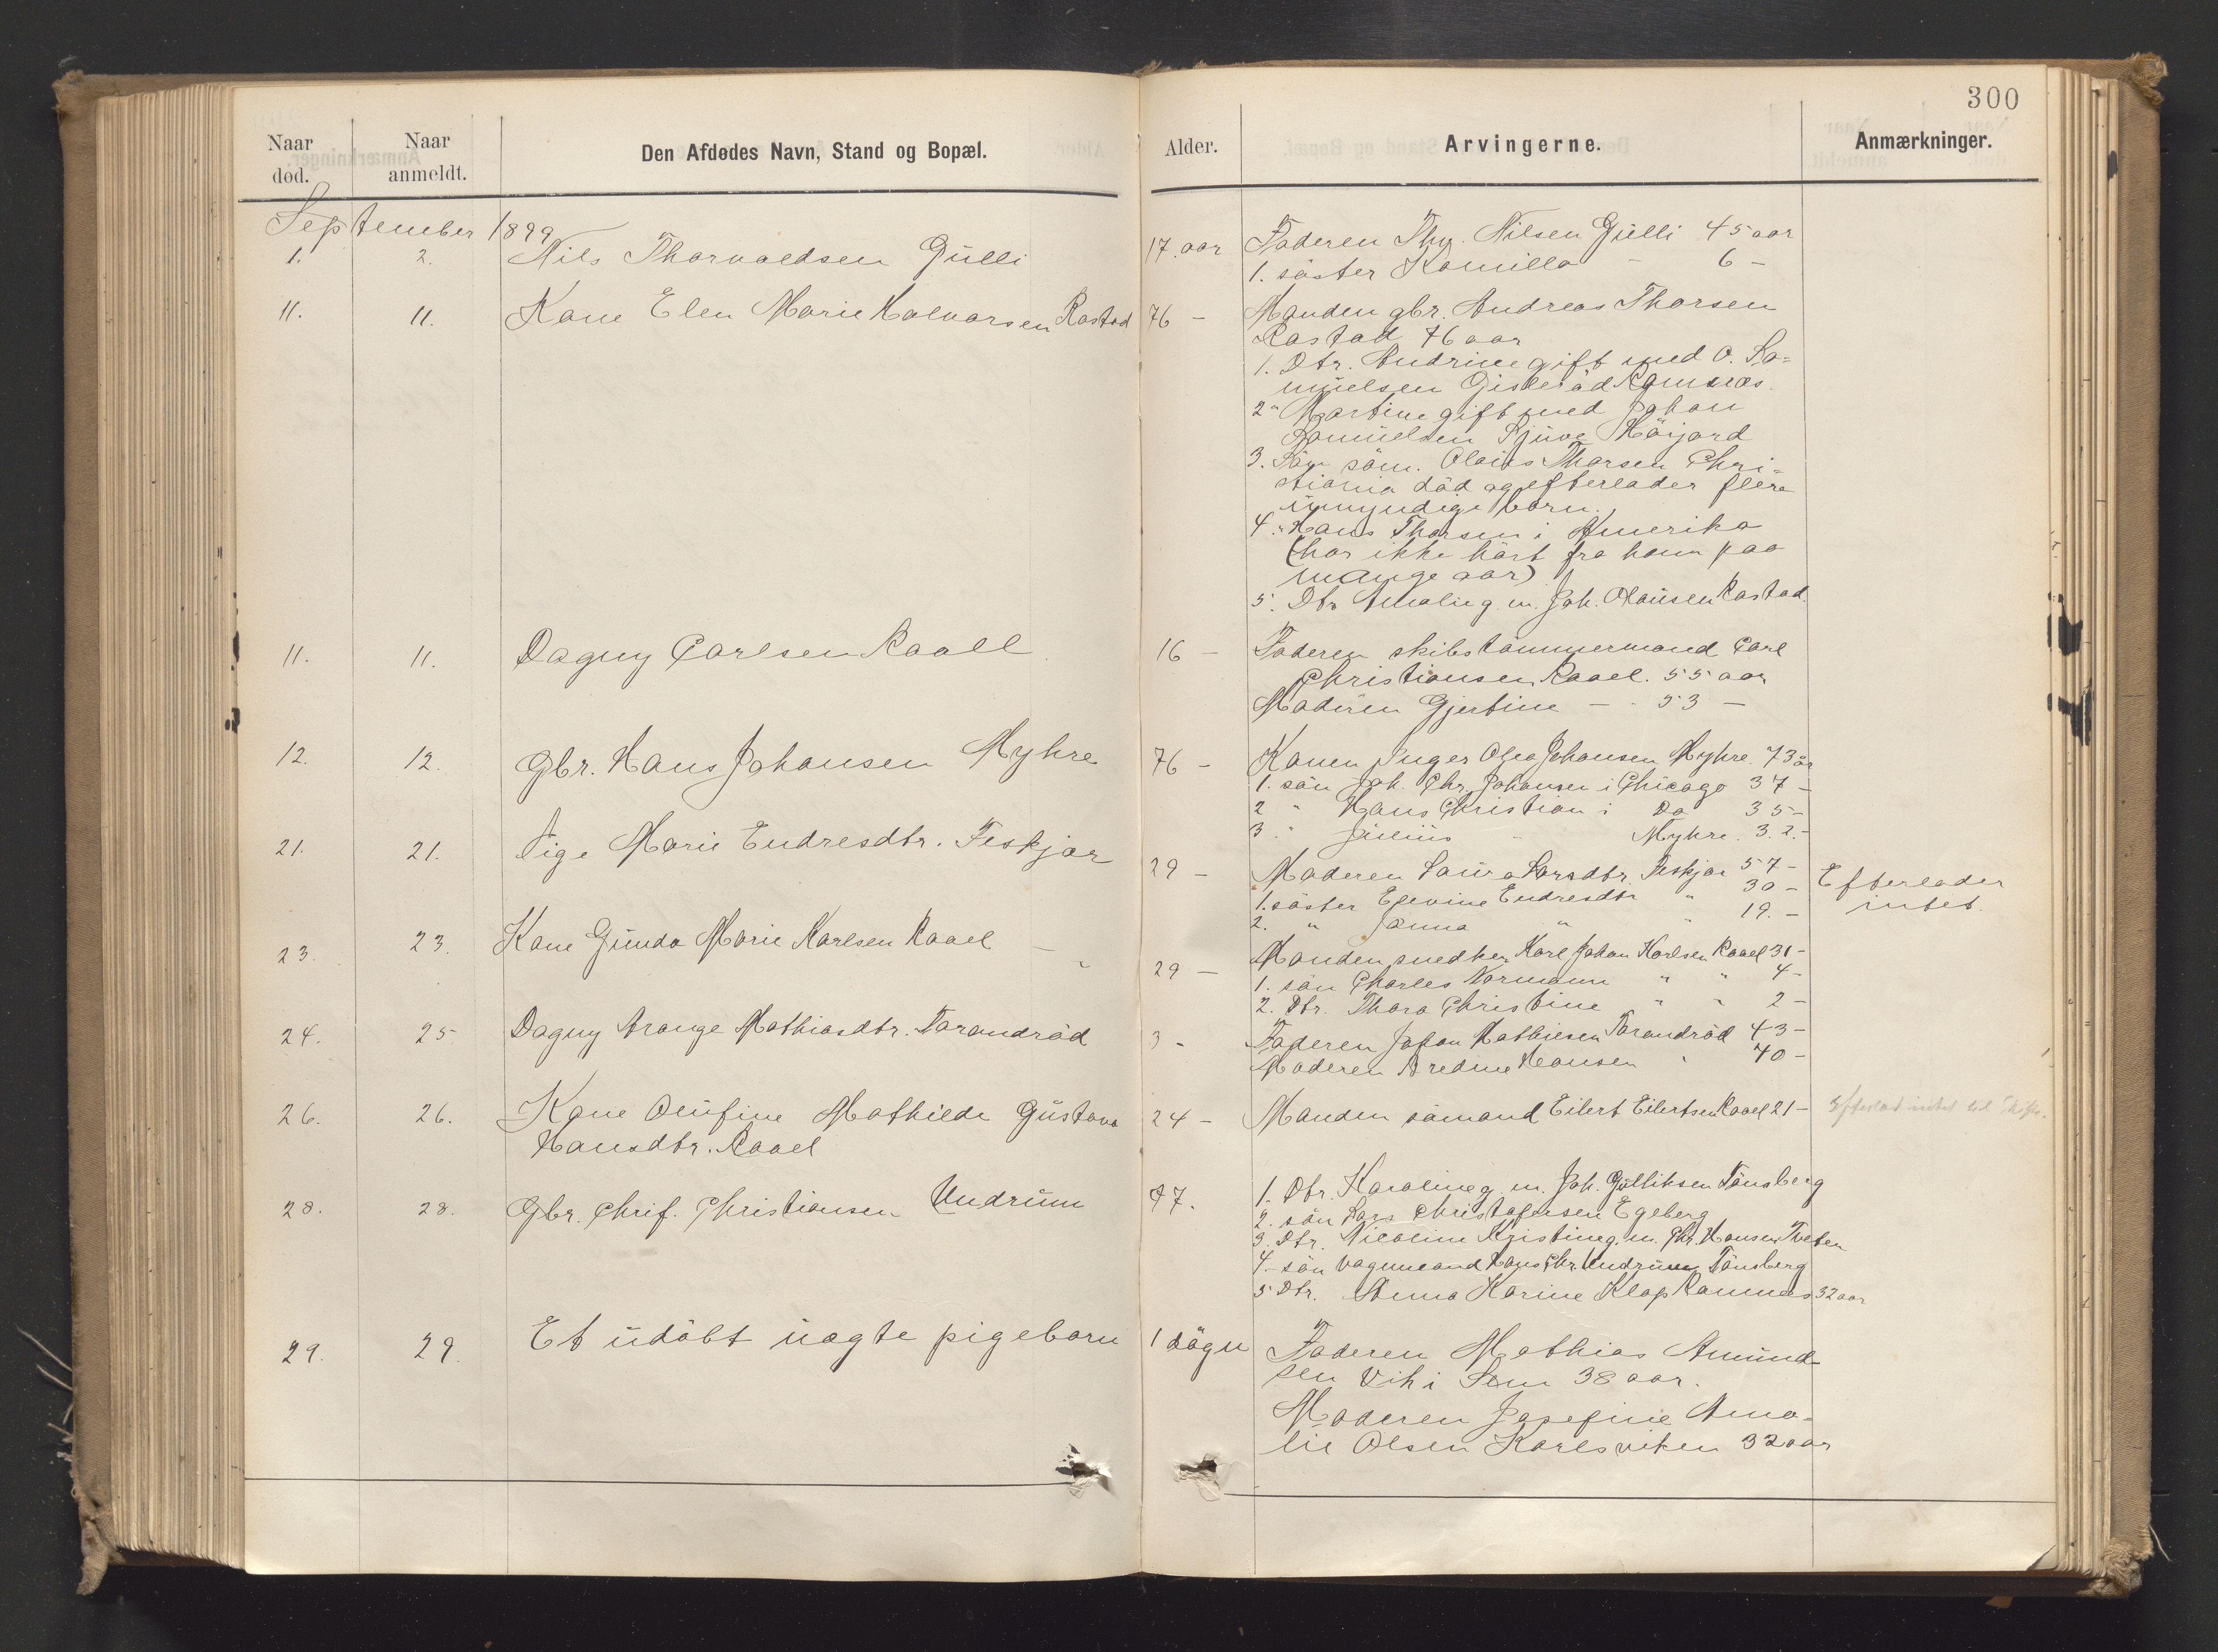 300
Naar død.
Naar anmeldt.
Den Afdødes Navn, Stand og Bopæl.
Alder.
Arvingerne.
Anmærkninger.
September 1899
1. 2. Nils Thorvaldsen Gulli 17 aar Faderen Thv. Nilsen Gulli 45 aar
1. søster Kamilla - 6 -
11. 11. Kone Elen Marie Halvorsen Rastad 76 - Manden gbr. Andreas Thorsen
Rastad 76 aar
1. Dtr. Andrine gift med O. Sa=
muelsen Giskerød Ramnæs.
2 " Martine gift med Johan
Samuelsen Sjuve Høijord
3. Søn søm. Olaus Thorsen Chri=
stiania død og efterlader flere
umyndige børn.
4. " Hans Thorsen i Amerika
(har ikke hørt fra ham paa
mange aar)
5. Dtr Amalie g. m. Joh. Olausen Rastad.
11. 11. Dagny Carlsen Raael 16 - Faderen skibstømmermand Carl
Christiansen Raael. 55 aar
Moderen Gjertine - - 53 -
12. 12. Gbr. Hans Johansen Myhre 76 - Konen Inger Olea Johansen Myhre. 73 år
1. søn Joh. Chr. Johansen i Chicago 37 -
2 " Hans Christian i Do 35 -
3. " Julius " Myhre. 32. -
21. 21. Pige Marie Endresdtr. Feskjær 29 - Moderen Laura Larsdtr. Feskjær 57 - Efterlader
1. søster Elevine Endresdtr " 30 - intet.
2. " Janna " " 19. -
23. 23. Kone Gunda Marie Karlsen Raael - 29 - Manden snedker Karl Johan Karlsen Raael 31 -
1. søn Charles Normann " " 4 -
2. Dtr. Thora Christine " " 2 -
24. 25 Dagny Arange Mathiasdtr. Tarandrød 3 - Faderen Johan Mathiesen Tarandrød 43 -
Moderen Bredine Hansen " 40 -
26. 26. Kone Olufine Mathilde Gustava 24 - Manden sømand Eilert Eilertsen Raael 21 - Efterlod intet til Skifte.
Hansdtr. Raael
28. 28. Gbr. Chrif. Christiansen Undrum 77. 1. Dtr. Karoline g. m. Joh. Gulliksen Tønsberg
2. søn Lars Christofersen Egeberg
3. Dtr. Nicoline Kristine g. m. Chr. Hansen Tveten
4 - søn vognmand Hans Chr. Undrum Tønsberg
5 Dtr. Anna Karine Klop Ramnes 32 aar
29. 29. Et udøbt uægte pigebarn 1 døgn Faderen Mathias Amund-
sen Vik i Sem 38 aar.
Moderen Josefine Ama=
lie Olsen Karlsviken 32 aar